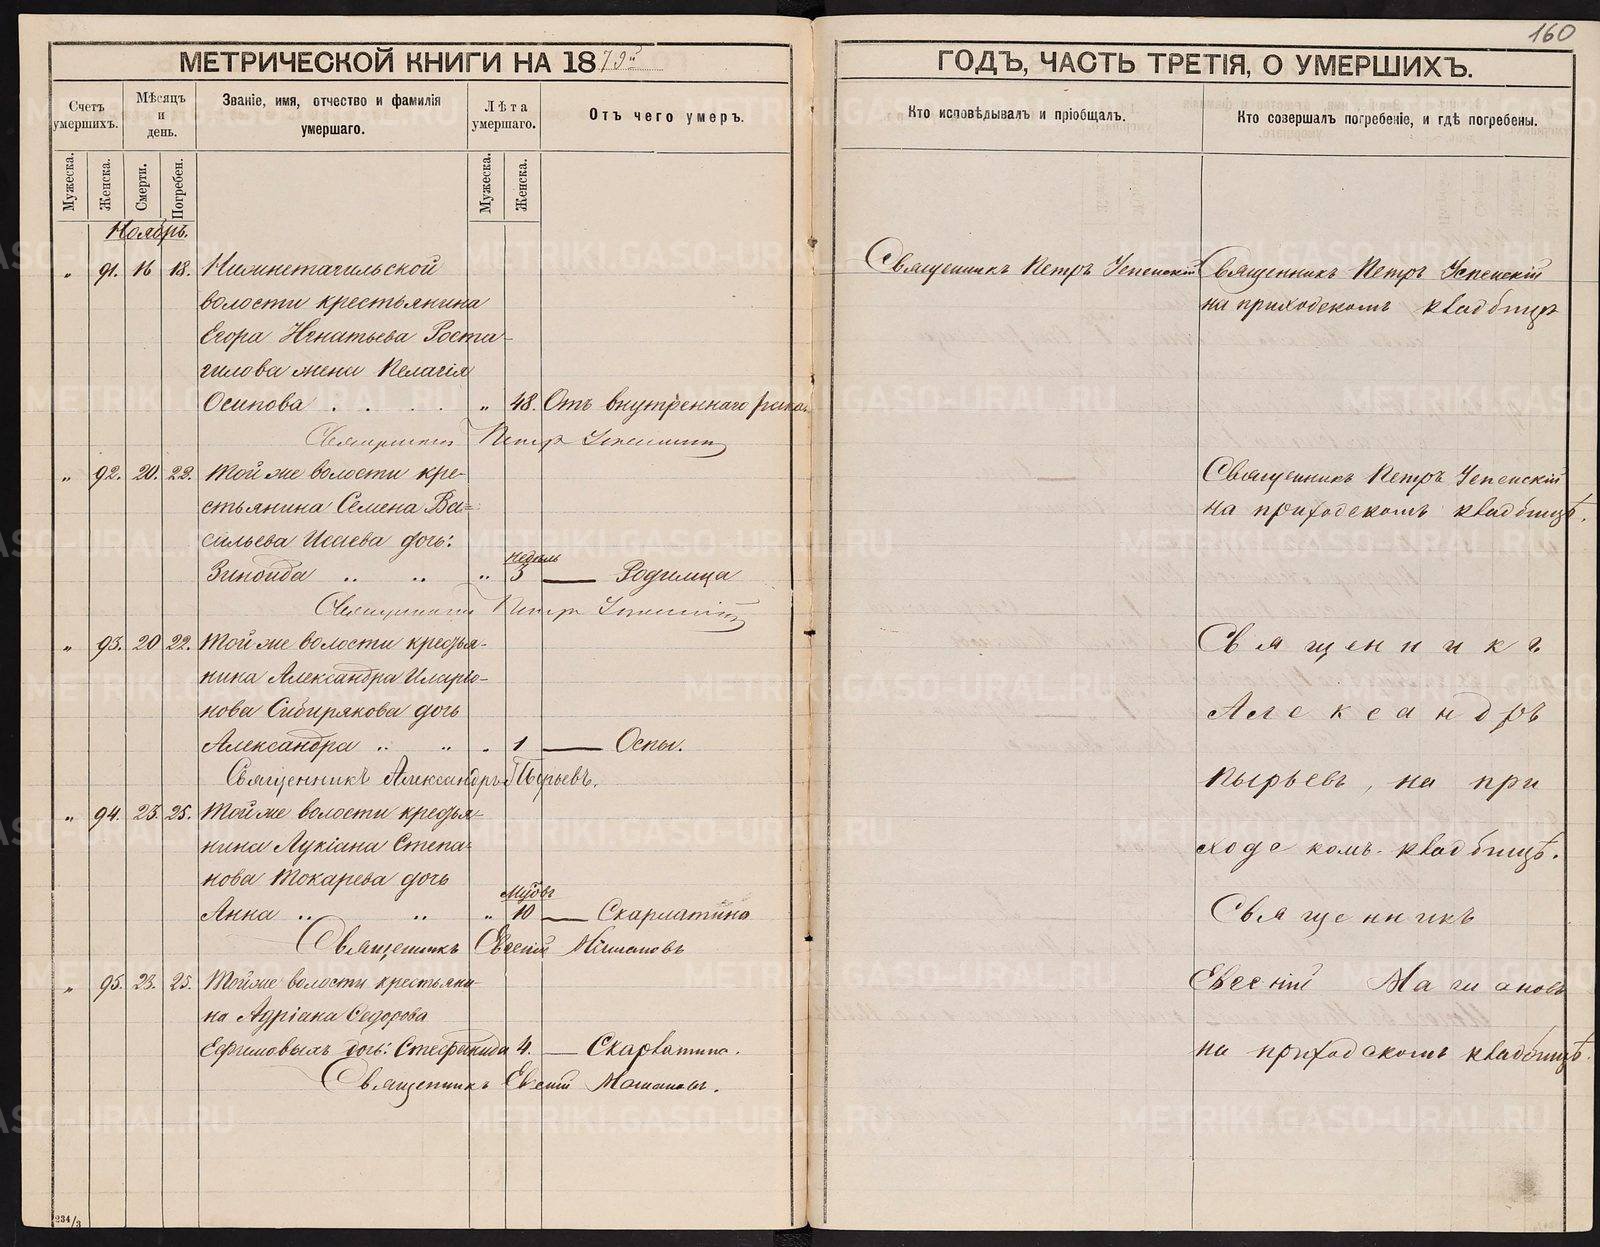 160
МЕТРИЧЕСКОЙ КНИГИ НА 1879й
ГОДЪ, ЧАСТЬ ТРЕТІЯ, О УМЕРШИХЪ.
Счетъ умершихъ.
Мѣсяцъ и день.
Званіе, имя, отчество и фамилія умершаго.
Лѣта умершаго.
Отъ чего умеръ.
Кто исповѣдывалъ и пріобщалъ.
Кто совершалъ погребеніе, и гдѣ погребены.
Мужеска.
Женска.
Смерти.
Погребен.
Мужеска.
Женска.
Ноябрь.
" 91. 16 18. Нижнетагильской
волости крестьянина
Егора Игнатьева Роста-
гилова жена Пелагія
Осипова . . . . " 48. Отъ внутренняго рака
Священникъ Петръ Успенскій
Священникъ Петръ Успенскій
на приходскомъ кладбищѣ
Священникъ Петръ Успенскій
" 92. 20. 22. Той же волости кре-
стьянина Семена Ва-
сильева Исаева дочь:
недѣль
Зиноида " " " 3 — Родимца
Священникъ Петръ Успенскій
— Священникъ Петръ Успенскій
на приходскомъ кладбищѣ.
" 93. 20 22. Той же волости крестья-
нина Александра Иларіо-
нова Сибирякова дочь
Александра " " " 1 — Оспы.
Священникъ Александръ Пырьевъ.
Священникъ
— Александръ
Пырьевъ, на при
ходскомъ кладбищѣ.
" 94. 23. 25. Той же волости крестья-
нина Лукіана Степа-
нова Токарева дочь
Мцовъ
Анна " " " 10 — Скарлатина
Священникъ Евсевій
Священникъ
" 95. 23. 25. Той же волости крестьяни-
на Адріана Федорова
Ефимовыхъ дочь: Стефанида 4. — Скарлатина.
Священникъ Евсевій
Евсевій
на приходскомъ кладбищѣ.
234/3
METRIKI.GASO-URAL.RU